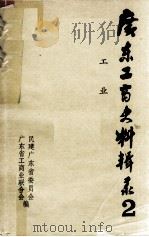 广东工商史料辑录2
工业
民建广东省委员会
广东省工商业联合会 编